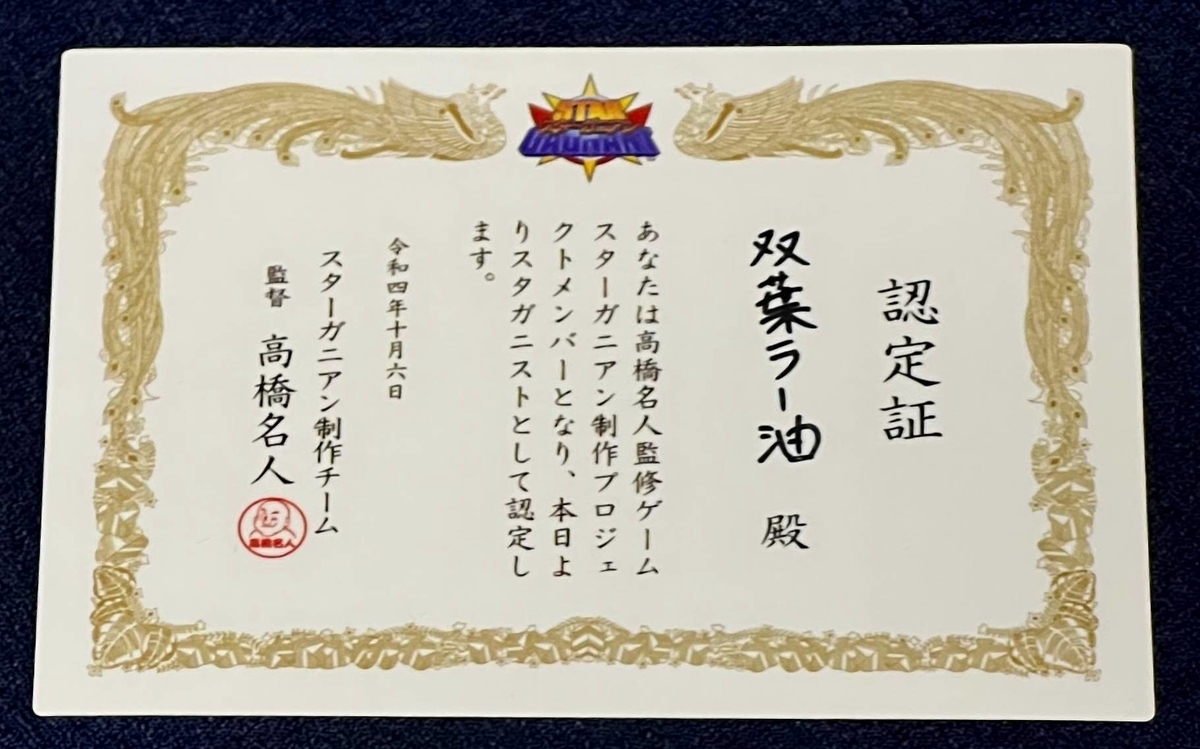 STAR
GAGNANT
認定証
双葉ラー油 殿
あなたは高橋名人監修ゲーム
スターガニアン制作プロジェ
クトメンバーとなり、本日よ
りスタガニストとして認定し
ます。
令和四年十月六日
スターガニアン制作チーム
監督 高橋名人
高橋名人